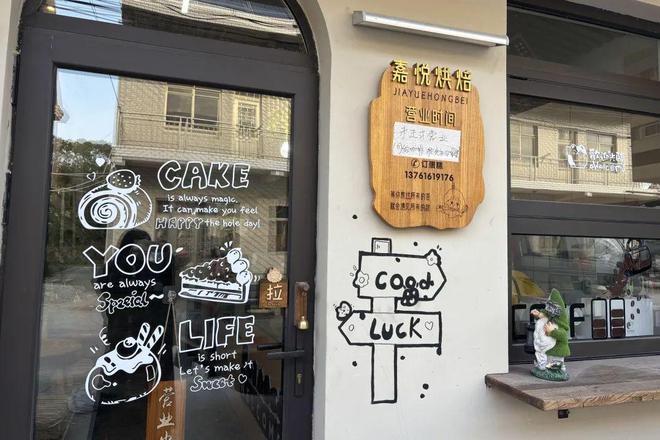 CAKE
is always magic.
It can make you feel
HAPPY the hole day!
YOU
are always
Special~
LIFE
is short
Let's make it
Sweet
拉
营业中
嘉悦烘焙
JIAYUEHONGBEI
营业时间
订蛋糕
13761619176
Good
LUCK